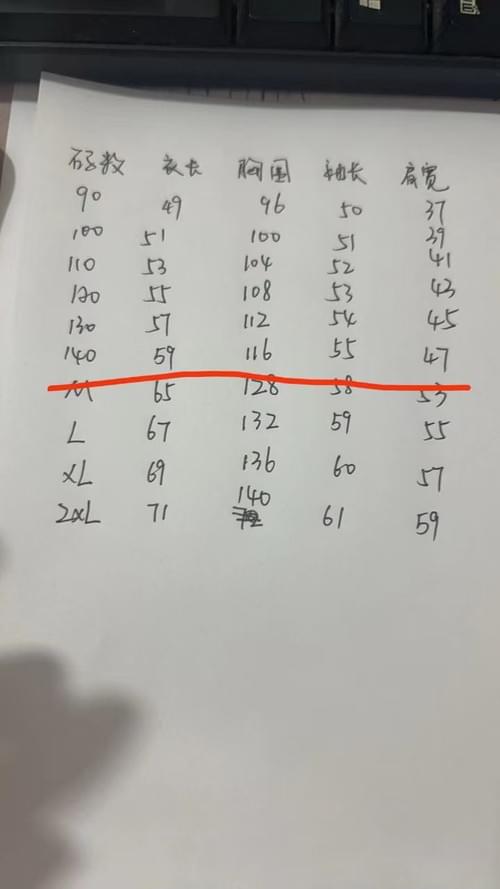 码数 衣长 胸围 袖长 肩宽
90 49 96 50 37
100 51 100 51 39
110 53 104 52 41
120 55 108 53 43
130 57 112 54 45
140 59 116 55 47
M 65 128 58 53
L 67 132 59 55
XL 69 136 60 57
2XL 71 140 61 59